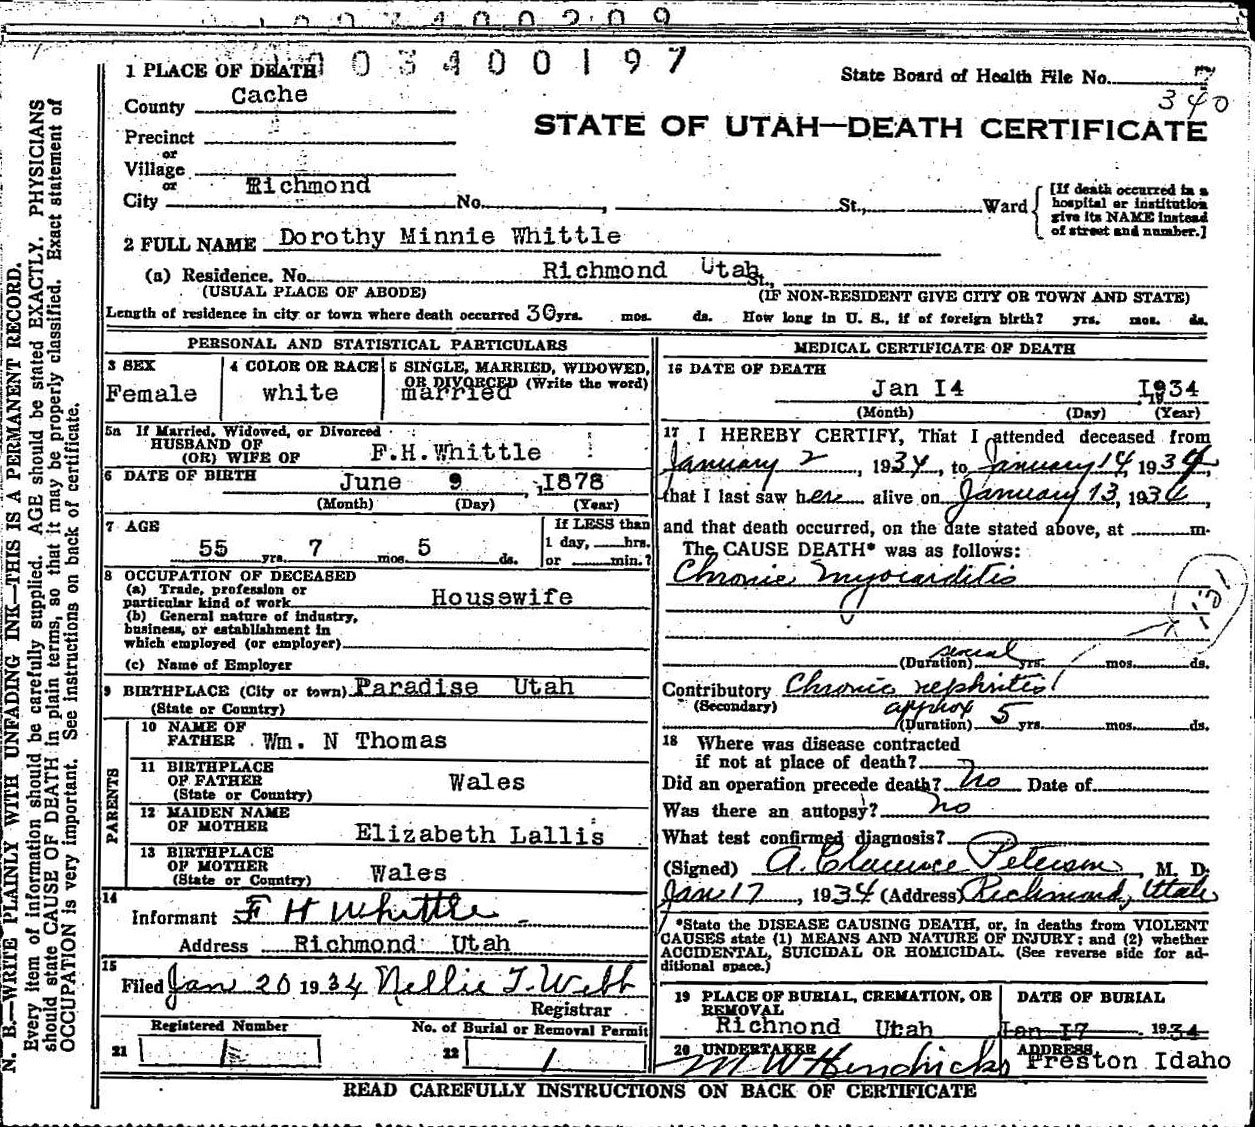 003400209
003400197
1 PLACE OF DEATH
State Board of Health File No. 7
340
County Cache
STATE OF UTAH—DEATH CERTIFICATE
Precinct
or
Village
or
City Richmond No. , St., Ward
[If death occurred in a
hospital or institution
give its NAME instead
of street and number.]
2 FULL NAME Dorothy Minnie Whittle
(a) Residence. No. Richmond Utah St.,
(USUAL PLACE OF ABODE) (IF NON-RESIDENT GIVE CITY OR TOWN AND STATE)
Length of residence in city or town where death occurred 30 yrs. mos. ds. How long in U. S., if of foreign birth? yrs. mos. ds.
PERSONAL AND STATISTICAL PARTICULARS
3 SEX
Female
4 COLOR OR RACE
white
5 SINGLE, MARRIED, WIDOWED,
OR DIVORCED (Write the word)
married
5a If Married, Widowed, or Divorced
HUSBAND OF
(OR) WIFE OF F.H.Whittle
6 DATE OF BIRTH June 9, 1878
(Month) (Day) (Year)
7 AGE
55 yrs. 7 mos. 5 ds.
If LESS than
1 day, hrs.
or min.?
8 OCCUPATION OF DECEASED
(a) Trade, profession or
particular kind of work Housewife
(b) General nature of industry,
business, or establishment in
which employed (or employer)
(c) Name of Employer
9 BIRTHPLACE (City or town) Paradise Utah
(State or Country)
PARENTS
10 NAME OF
FATHER Wm. N Thomas
11 BIRTHPLACE
OF FATHER Wales
(State or Country)
12 MAIDEN NAME
OF MOTHER Elizabeth Lallis
13 BIRTHPLACE
OF MOTHER
(State or Country) Wales
14
Informant F H Whittle
Address Richmond Utah
15
Filed Jan 20 1934 Nellie T. Webb
Registrar
Registered Number
21 1
No. of Burial or Removal Permit
22 1
MEDICAL CERTIFICATE OF DEATH
16 DATE OF DEATH
Jan I4 I934
(Month) (Day) (Year)
17 I HEREBY CERTIFY, That I attended deceased from
January 2, 1934, to January 14, 1934,
that I last saw her alive on January 13, 1934
and that death occurred, on the date stated above, at m.
The CAUSE DEATH* was as follows:
Chronic myocarditis
(Duration) several yrs. mos. ds.
Contributory Chronic nephritis
(Secondary) approx
(Duration) 5 yrs. mos. ds.
18 Where was disease contracted
if not at place of death?
Did an operation precede death? No Date of
Was there an autopsy? no
What test confirmed diagnosis?
(Signed) A. Clarence Peterson, M. D.
Jan 17, 1934 (Address) Richmond, Utah
*State the DISEASE CAUSING DEATH, or, in deaths from VIOLENT
CAUSES state (1) MEANS AND NATURE OF INJURY; and (2) whether
ACCIDENTAL, SUICIDAL OR HOMICIDAL. (See reverse side for ad-
ditional space.)
19 PLACE OF BURIAL, CREMATION, OR
REMOVAL
Richnond Utah
DATE OF BURIAL
Jan I7 1934
20 UNDERTAKER
M W Hendricks
ADDRESS
Preston Idaho
READ CAREFULLY INSTRUCTIONS ON BACK OF CERTIFICATE
N. B.—WRITE PLAINLY WITH UNFADING INK—THIS IS A PERMANENT RECORD.
Every item of information should be carefully supplied. AGE should be stated EXACTLY. PHYSICIANS
should state CAUSE OF DEATH in plain terms, so that it may be properly classified. Exact statement of
OCCUPATION is very important. See instructions on back of certificate.